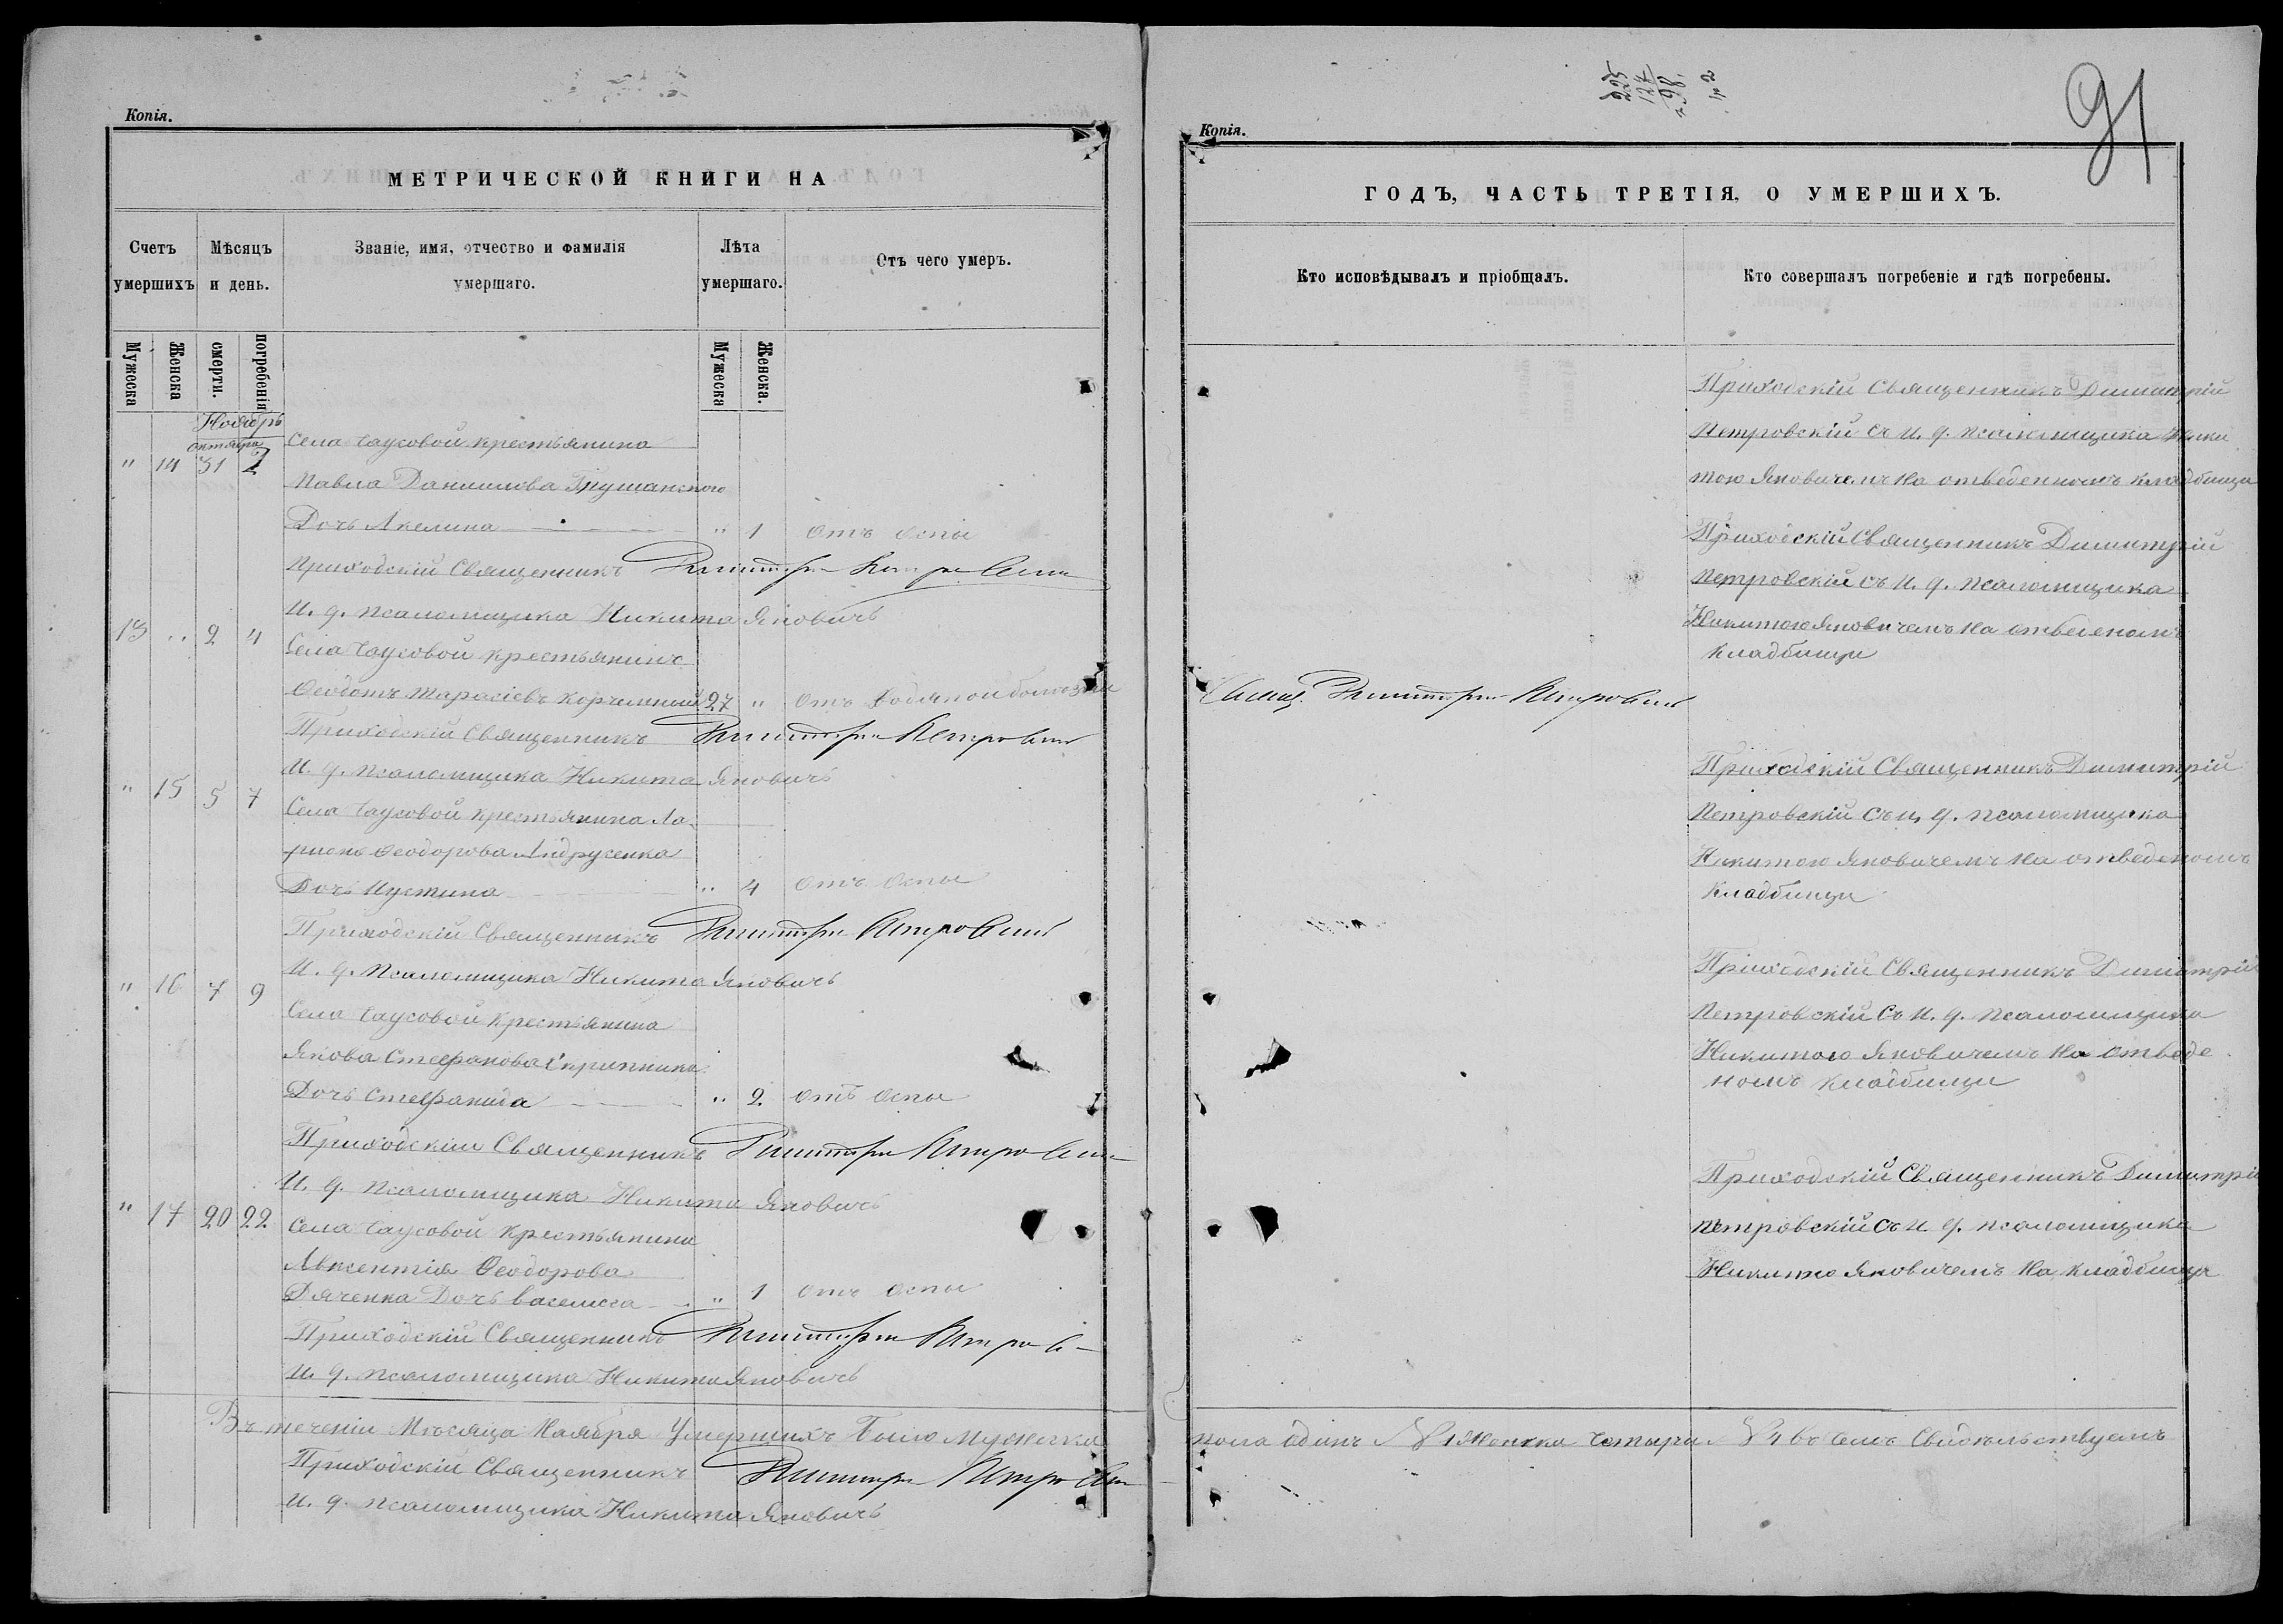 Копія.
МЕТРИЧЕСКОЙ КНИГИ НА
Счетъ умершихъ
Мѣсяцъ и день.
Званіе, имя, отчество и фамилія умершаго.
Лѣта умершаго.
Отъ чего умеръ.
Мужеска
Женска
смерти.
погребенія
Мужеска
Женска.
Ноябрь
октября
" 14 31 2
Села Чаусовой крестьянина
Павла Даниилова Грушанского
Дочь Акелина " 1 отъ оспы
Приходскій Священникъ Димитрій Петровскій
И. д. псаломщика Никита Яновичъ
13 " 2 4
Села Чаусовой крестьянинъ
Ѳеодотъ Тарасіевъ Корчемный 27 " отъ водяной болезни
Приходскій Священникъ Димитрій Петровскій
И. д. псаломщика Никита Яновичъ
" 15 5 7
Села Чаусовой крестьянина Ла-
ріонъ Ѳеодорова Андрусенка
Дочь Иустина " 4 отъ оспы
Приходскій Священникъ Димитрій Петровскій
И. д. псаломщика Никита Яновичъ
" 16 7 9
Села Чаусовой крестьянина
Якова Стефанова Скрипника
Дочь Стефанида " 2 отъ оспы
Приходскій Священникъ Димитрій Петровскій
И. д. псаломщика Никита Яновичъ
" 17 20 22
Села Чаусовой крестьянина
Авксентія Ѳеодорова
Дяченка Дочь Васелиса " 1 отъ оспы
Приходскій Священникъ Димитрій Петровскій
И. д. псаломщика Никита Яновичъ
Въ теченіи Мѣсяца Ноября Умершихъ Было мужеска
Приходскій Священникъ Димитрій Петровскій
И. д. псаломщика Никита Яновичъ
225
127
98
91
Копія.
ГОДЪ, ЧАСТЬ ТРЕТІЯ, О УМЕРШИХЪ.
Кто исповѣдывалъ и пріобщалъ.
Кто совершалъ погребеніе и гдѣ погребены.
Приходскій Священникъ Димитрій
Петровскій съ И. д. псаломщика Ники
тою Яновичемъ на отведенномъ кладбищи
Приходскій Священникъ Димитрій
Петровскій съ И. д. псаломщика
Никитою Яновичемъ на отведеномъ
кладбищи
Священ. Димитрій Петровскій
Приходскій Священникъ Димитрій
Петровскій съ И. д. псаломщика
Никитою Яновичемъ на отведеномъ
кладбищи
Приходскій Священникъ Димитрій
Петровскій съ И. д. псаломщика
Никитою Яновичемъ на отведе
номъ кладбищи
Приходскій Священникъ Димитрій
Петровскій съ И. д. псаломщика
Никитою Яновичемъ на кладбищи
пола одинъ № 1 женска четыри № 4 въ чемъ Свидѣльствуемъ